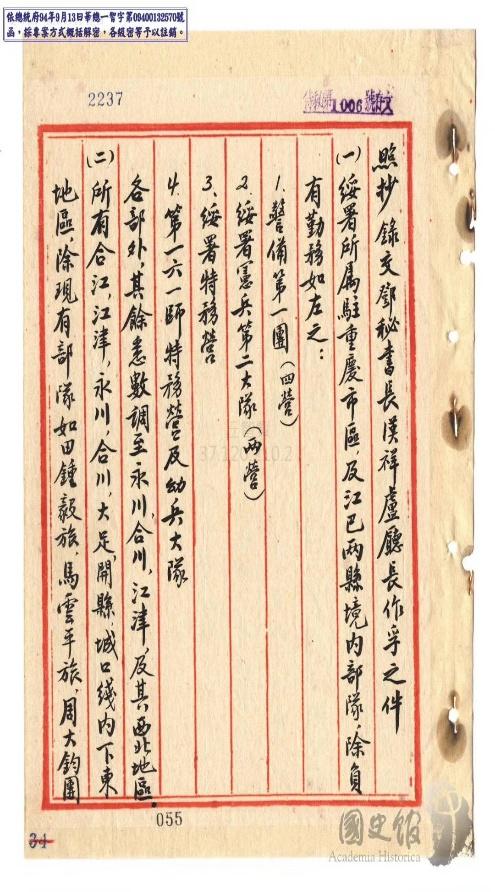 依總統府94年9月13日華總一智字第09400132570號
函,採專案方式概括解密,各級密等予以註銷。
2237
1006
照抄錄交鄧秘書長漢祥盧廳長作孚之件
(一)綏署所屬駐重慶市區,及江巴兩縣境內部隊,除負
有勤務如左之:
1. 警備第一團(四營)
2. 綏署憲兵第二大隊(兩營)
3. 綏署特務營
4. 第一六一師特務營及幼兵大隊
各部外,其餘悉數調至永川,合川,江津,及其西北地區.
(二)所有合江,江津,永川,合川,大足,開縣,城口綫內下東
地區,除現有部隊如田鍾毅旅,馬雲平旅,周大鈞團
055
34
國史館
Academia Historica